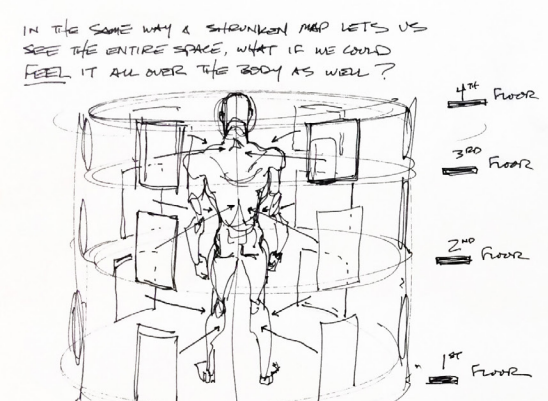 IN THE SAME WAY A SHRUNKEN MAP LETS US
SEE THE ENTIRE SPACE, WHAT IF WE COULD
FEEL IT ALL OVER THE BODY AS WELL?
4TH FLOOR
3RD FLOOR
2ND FLOOR
1ST FLOOR